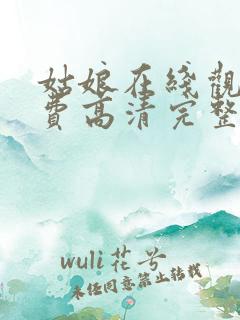 姑娘在綫觀
費高清完整
wuli花兮
未经同意禁止转载